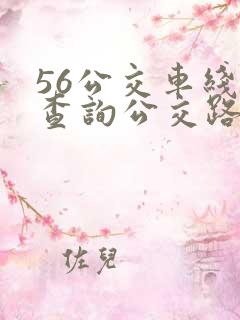 56公交車綫
查詢公交路
佐兒